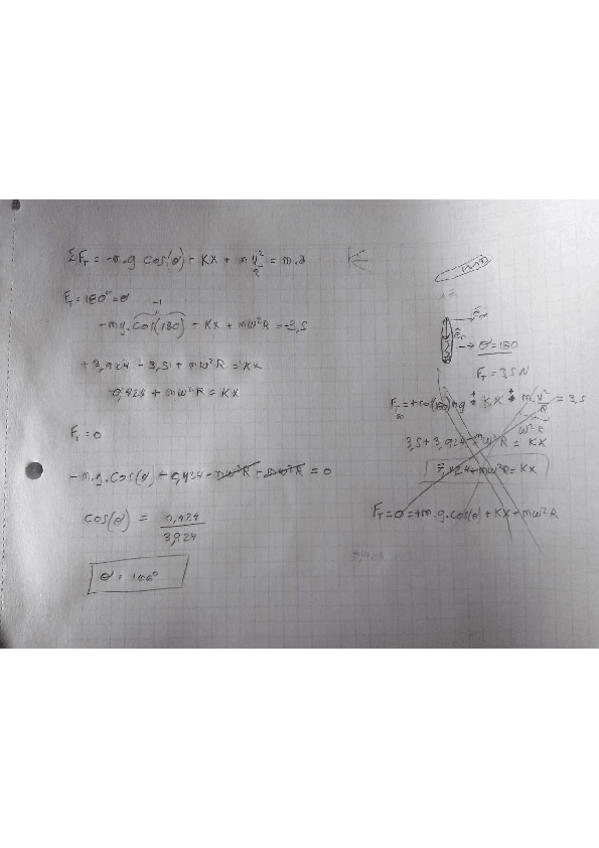 ΣF_T = -m.g cos(θ) - KX + m v²/R = m.a
F_T = 180° = θ
-1
-mg.cos(180) - KX + mω²R = -3,5
+3,924 - 3,5 + mω²R = KX
0,424 + mω²R = KX
F_T = 0
-m.g.cos(θ) - 0,424 - mω²R - mω²R = 0
cos(θ) = 0,424 / 3,924
θ = 106°
→ θ = 180
F_T = 3,5 N
F_T = +cos(180) mg + KX + m.v²/R = 3,5
180
ω².R
3,5 + 3,924 - mω²R = KX
7,424 - mω²R = KX
F_T = 0 = +m.g.cos(θ) + KX - mω²R
3,924